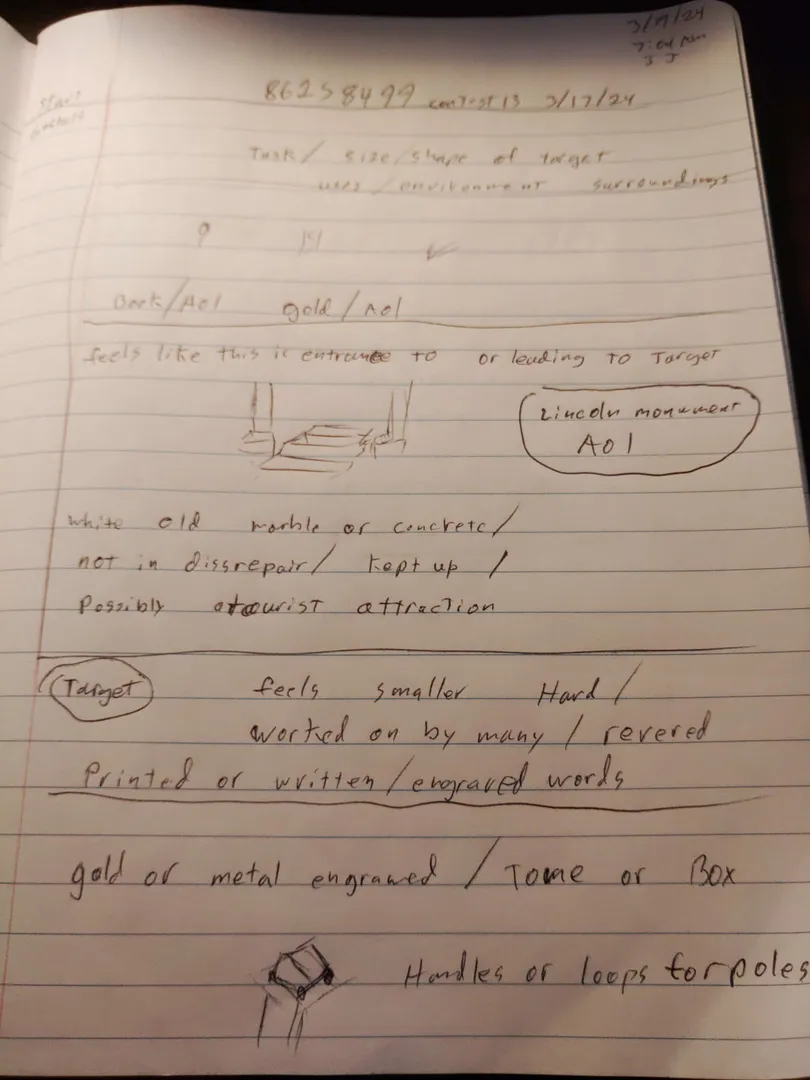 3/19/24
7:04 Am
J J
Start
86258499 contest 13 3/17/24
Task/ size/shape of target
uses/environment surroundings
?
Book/AOl gold/AOl
feels like this is entrance to or leading to Target
Lincoln monument
AOl
white old marble or concrete/
not in dissrepair/ kept up /
Possibly a tourist attraction
Target feels smaller Hard/
worked on by many / revered
Printed or written/engraved words
gold or metal engraved / Tome or Box
Handles or loops for poles